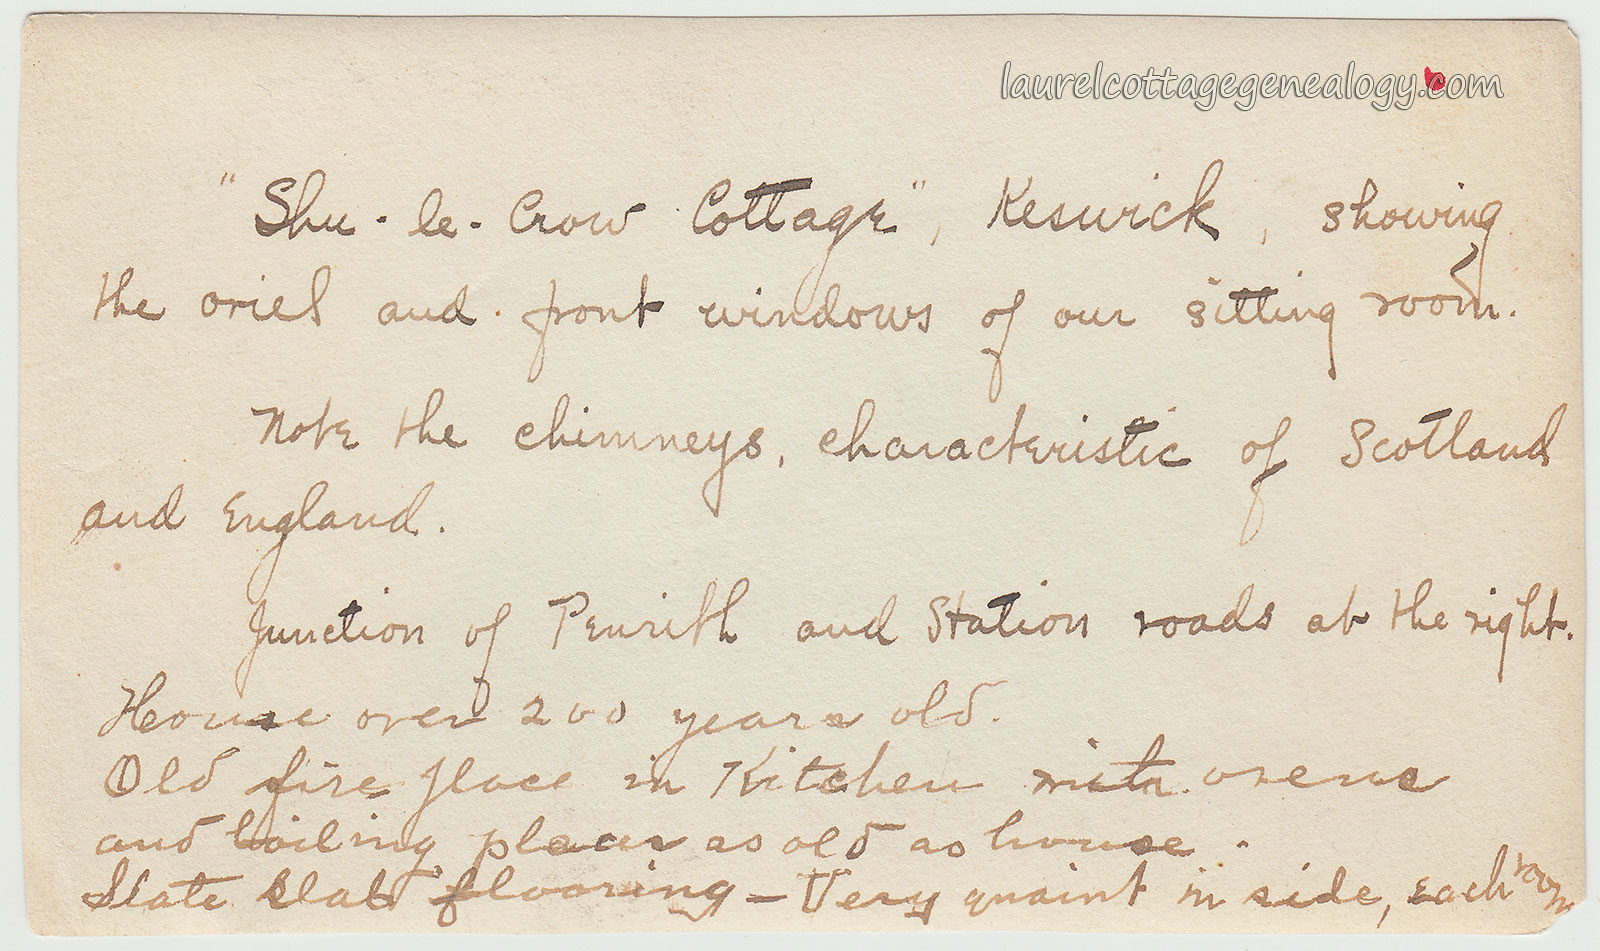 laurelcottagegenealogy.com
"Shu-le-Crow Cottage", Keswick, showing
the oriel and front windows of our sitting room.
Note the chimneys, characteristic of Scotland
and England.
Junction of Penrith and Station roads at the right.
House over 200 years old.
Old fire place in Kitchen with ovens
and boiling places as old as house.
Slate slab flooring – Very quaint in side, each room